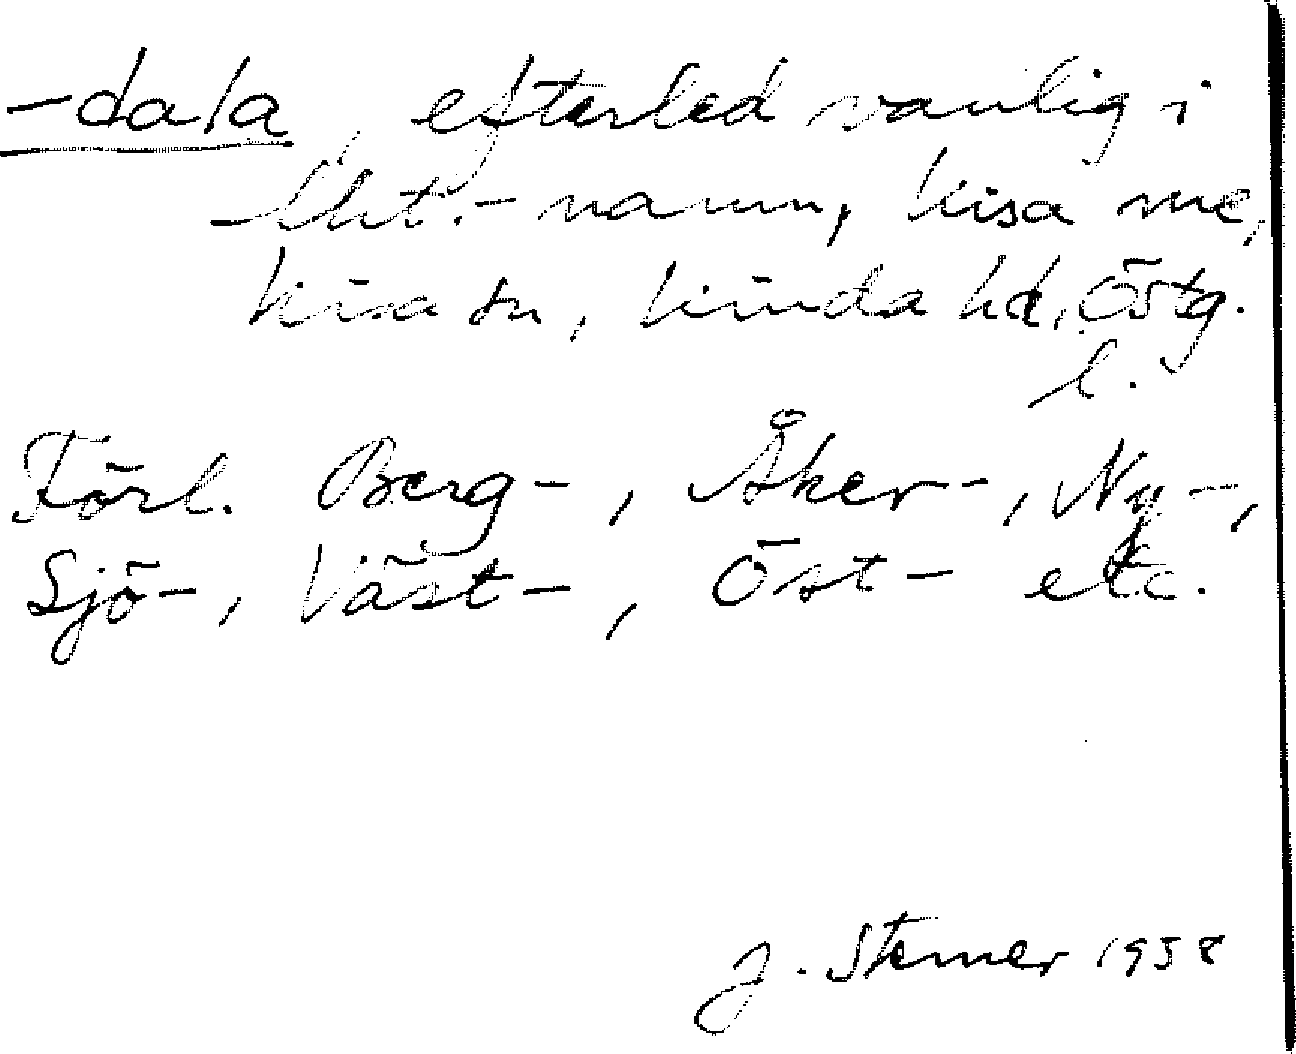 -dala, efterled vanlig i
lht.-namn, Kisa mc,
Kisa sn, Kinda hd, Östg.
l.
Förl. Berg-, Åker-, Ny-,
Sjö-, Väst-, Öst- etc.
J. Sterner 1958